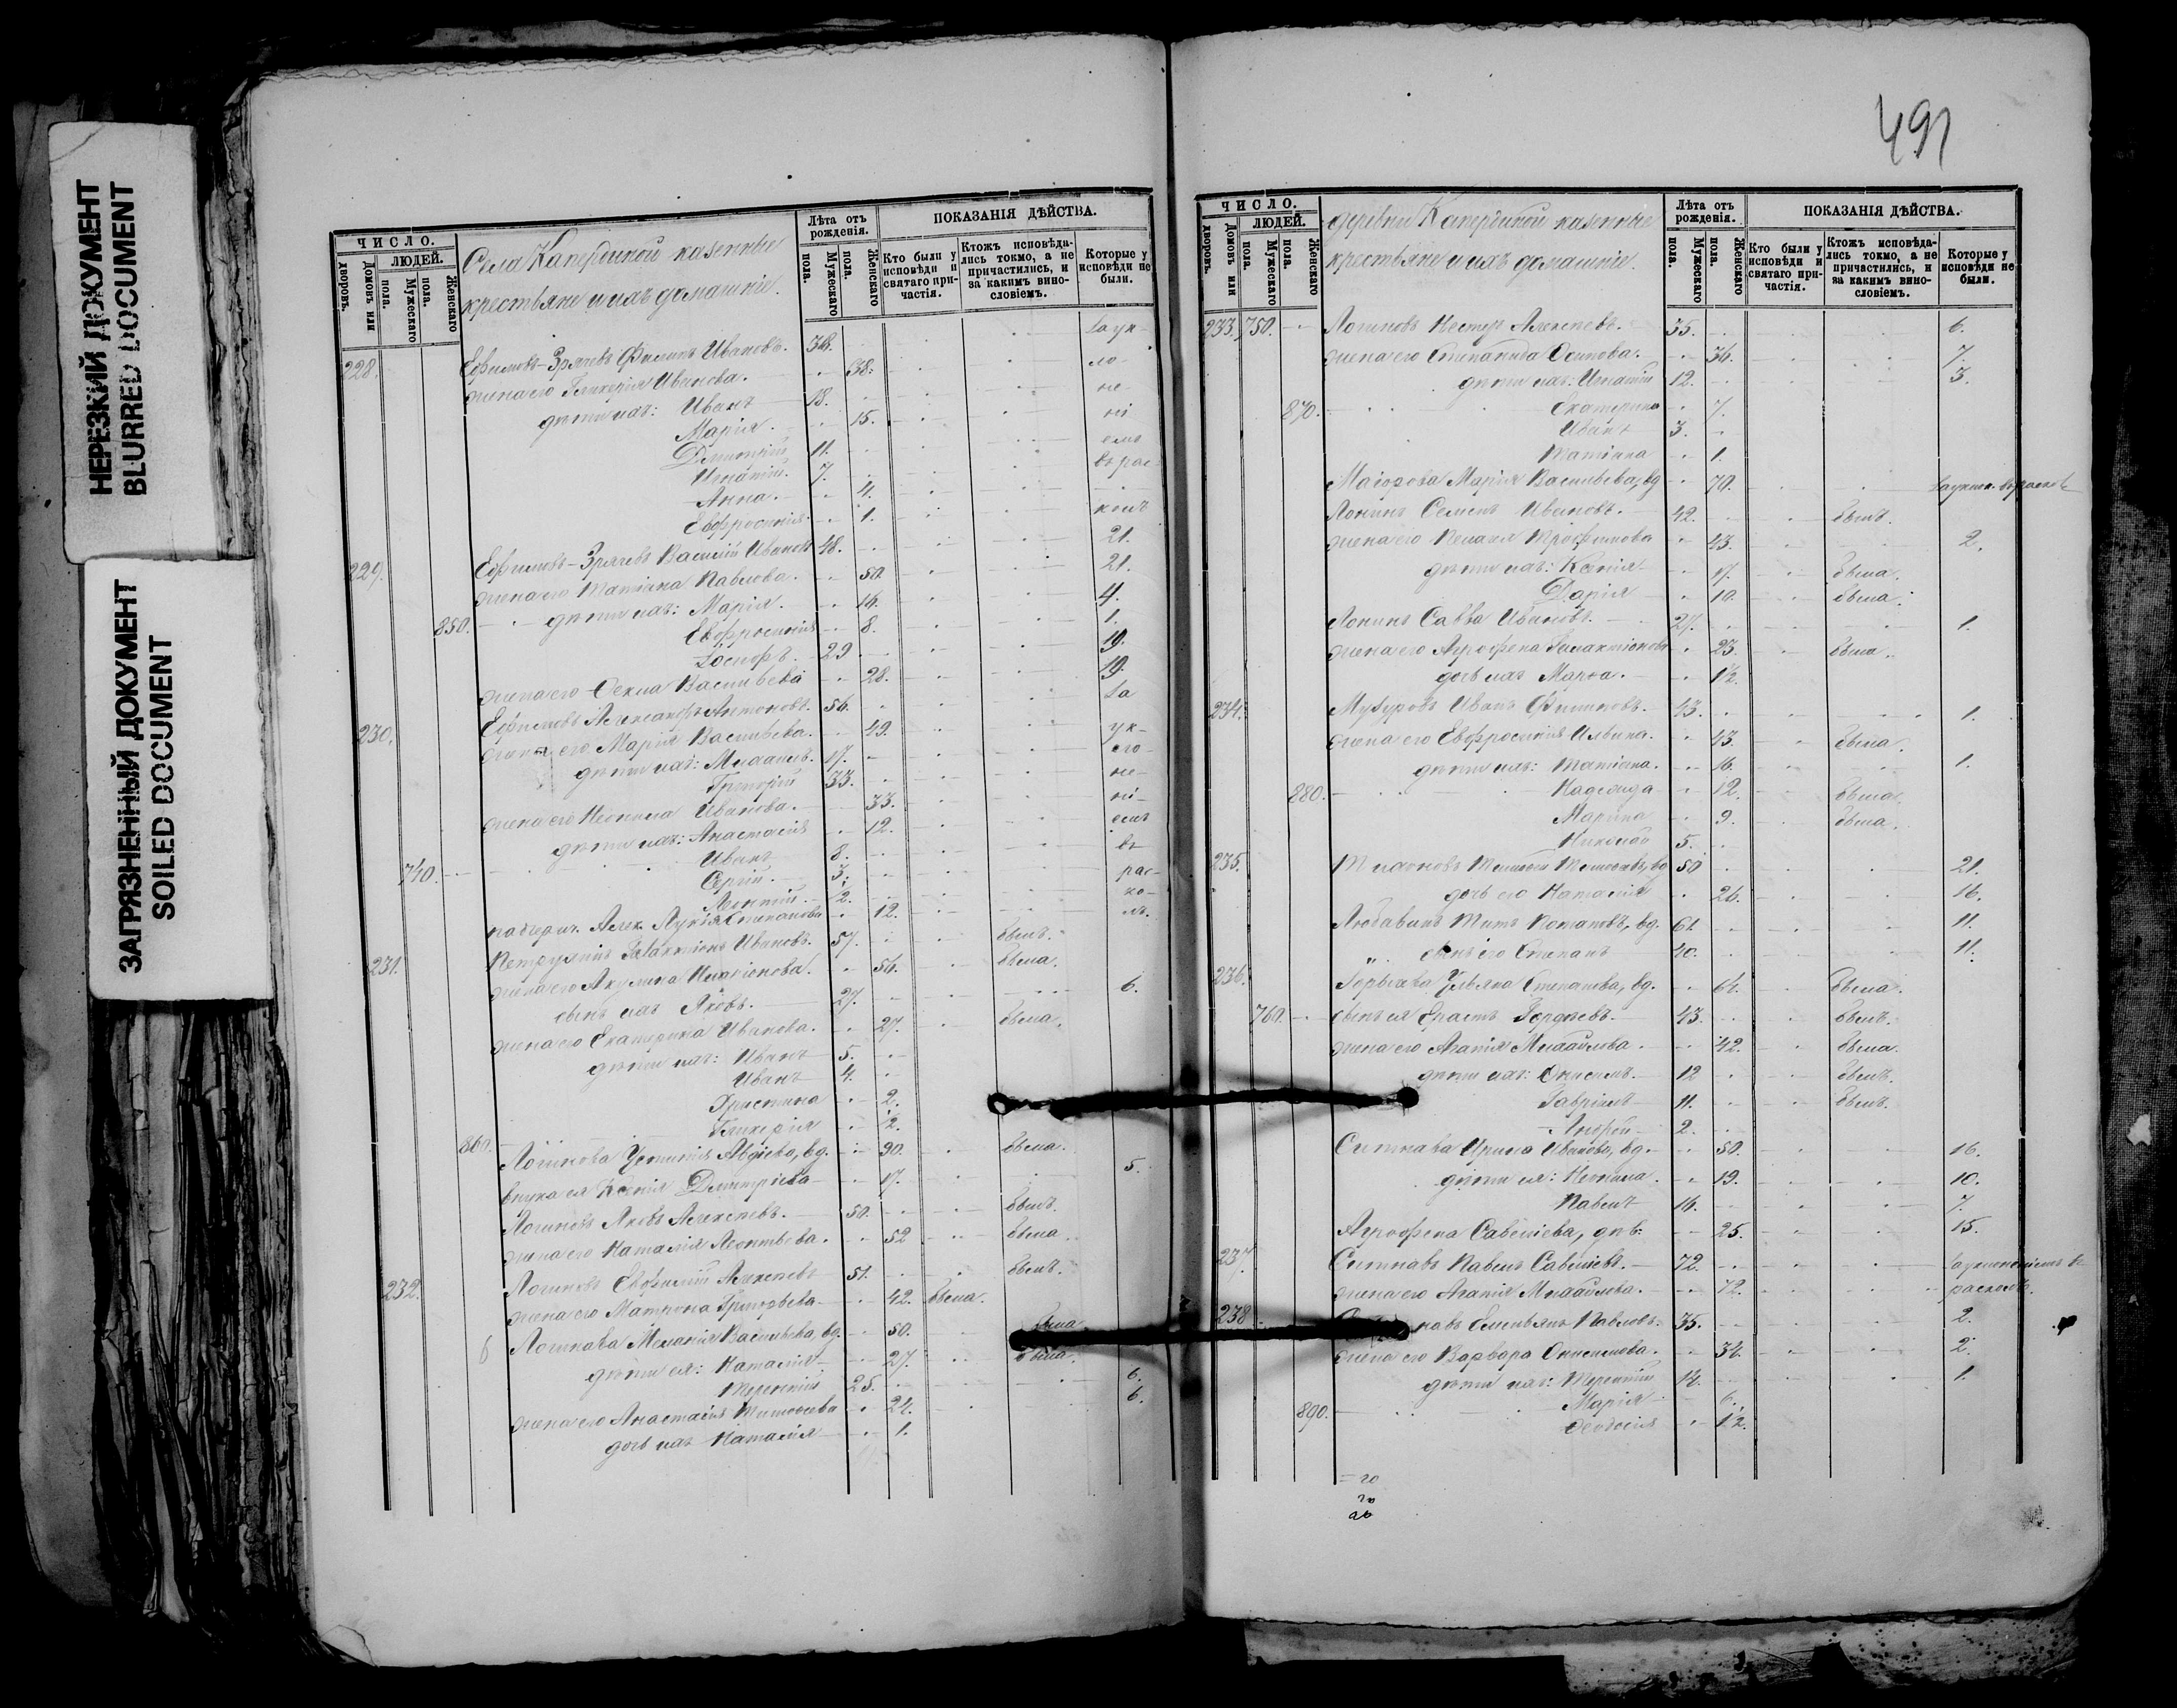 НЕРЕЗКИЙ ДОКУМЕНТ
BLURRED DOCUMENT
ЗАГРЯЗНЕННЫЙ ДОКУМЕНТ
SOILED DOCUMENT
ЧИСЛО.
ЛЮДЕЙ.
Домовъ или дворовъ.
Мужескаго пола.
Женскаго пола.
Села казенные
крестьяне и ихъ домашніе.
Лѣта отъ рожденія.
Мужескаго пола.
Женскаго пола.
ПОКАЗАНІЯ ДѢЙСТВА.
Кто были у исповѣди и святаго причастія.
Ктожъ исповѣдались токмо, а не причастились, и за какимъ винословіемъ.
Которые у исповѣди не были.
228. Ефимовъ-Зрячевъ Филипъ Ивановъ. 38. за ук-
жена его Гликерія Иванова. 38. ло-
дѣти ихъ: Иванъ 18. не-
Марія. 15. ні
Димитрій 11. емъ
Игнатій. 7. въ рас-
Анна. 4.
Евфросинія 1. колъ
229. Ефимовъ-Зрячевъ Василій Ивановъ 48. 21.
жена его Татіана Павлова. 50. 21.
850. дѣти ихъ: Марія. 14. 4.
Евфросинія 8. 1.
Іосифъ. 29 19.
жена его Ѳекла Васильева 28. 19.
230. Ефимовъ Александръ Антоновъ. 56. за
жена его Марія Васильева. 49. ук-
дѣти ихъ: Михаилъ. 17. ло-
Григорій 33. не-
жена его Неонила Иванова. 33. ні-
дѣти ихъ: Анастасія 12. емъ
740. Иванъ 8. въ
Сергій. 3. рас-
Леонтій. 2. ко-
Лукія Степанова 12. лъ.
231. Галактіонъ Ивановъ. 57. былъ.
жена его Акулина Иларіонова. 54. была.
сынъ ихъ Яковъ. 27. 6.
жена его Екатерина Иванова. 27. была.
дѣти ихъ: Иванъ 5.
Иванъ 4.
Христина 2.
Гликерія 2.
860. Логинова Устинія Авдіева, вд. 90. была.
внука ея Ксенія Димитріева 17. 5.
Логиновъ Яковъ Алексѣевъ. 50. былъ.
жена его Наталія Леонтьева. 52 была.
232. Логиновъ Евфимій Алексѣевъ 51. былъ.
жена его Матрона Григорьева 42. была.
Меланія Васильева, вд. 50. была
дѣти ея: Наталія 27. была.
Терентій 25. 6.
жена его Анастасія Тимоѳеева 24. 6.
дочь ихъ Наталія 1.
491
ЧИСЛО.
ЛЮДЕЙ.
Домовъ или дворовъ.
Мужескаго пола.
Женскаго пола.
деревни казенные
крестьяне и ихъ домашніе.
Лѣта отъ рожденія.
Мужескаго пола.
Женскаго пола.
ПОКАЗАНІЯ ДѢЙСТВА.
Кто были у исповѣди и святаго причастія.
Ктожъ исповѣдались токмо, а не причастились, и за какимъ винословіемъ.
Которые у исповѣди не были.
233. 750. Логиновъ Несторъ Алексѣевъ. 35. 6.
жена его Степанида Осипова. 34. 7.
дѣти ихъ: Игнатій 12. 3.
870. Екатерина 7.
Иванъ 3.
Татіана 1.
Маіорова Марія Васильева, вд 70.
Лонинъ Семенъ Ивановъ. 42. былъ.
жена его Пелагія Трофимова 43. 2.
дѣти ихъ: Ксенія 17. была.
Дарія 10. была.
Лонинъ Савва Ивановъ. 27. 1.
жена его Агрофена Галактіонова 23. была.
дочь ихъ Марѳа. 1/2.
234. Иванъ Филиповъ. 43. 1.
жена его Евфросинія Ильина. 43. была.
дѣти ихъ: Татіана. 16. 1.
880. Надежда 12. была.
Марина 9. была.
Николай 5.
235. Тихоновъ 50 21.
дочь его Наталія 26. 16.
Любавинъ Титъ Потаповъ, вд. 61. 11.
сынъ его Степанъ 40. 11.
236. Ульяна Степанова, вд. 64. была.
760. сынъ ея Ерастъ Гордѣевъ. 43. былъ.
жена его Агапія Михайлова. 42. была.
дѣти ихъ: Онисимъ. 12 былъ.
Гавріилъ 11. былъ.
Андрей 2.
Ситнова Ирина Иванова, вд. 50. 16.
дѣти ея: Неонила. 19. 10.
Павелъ 14. 7.
Агрофена Савельева, дѣв. 25. 15.
237. Ситновъ Павелъ Савельевъ. 72. за уклоненіемъ въ
жена его Агапія Михайлова. 72. расколъ.
238 Емельянъ Павловъ. 35. 2.
жена его Варвара Онисимова. 34. 2.
дѣти ихъ: Терентій 14. 1.
890. Марія 6.
Ѳеодосія 1/2.